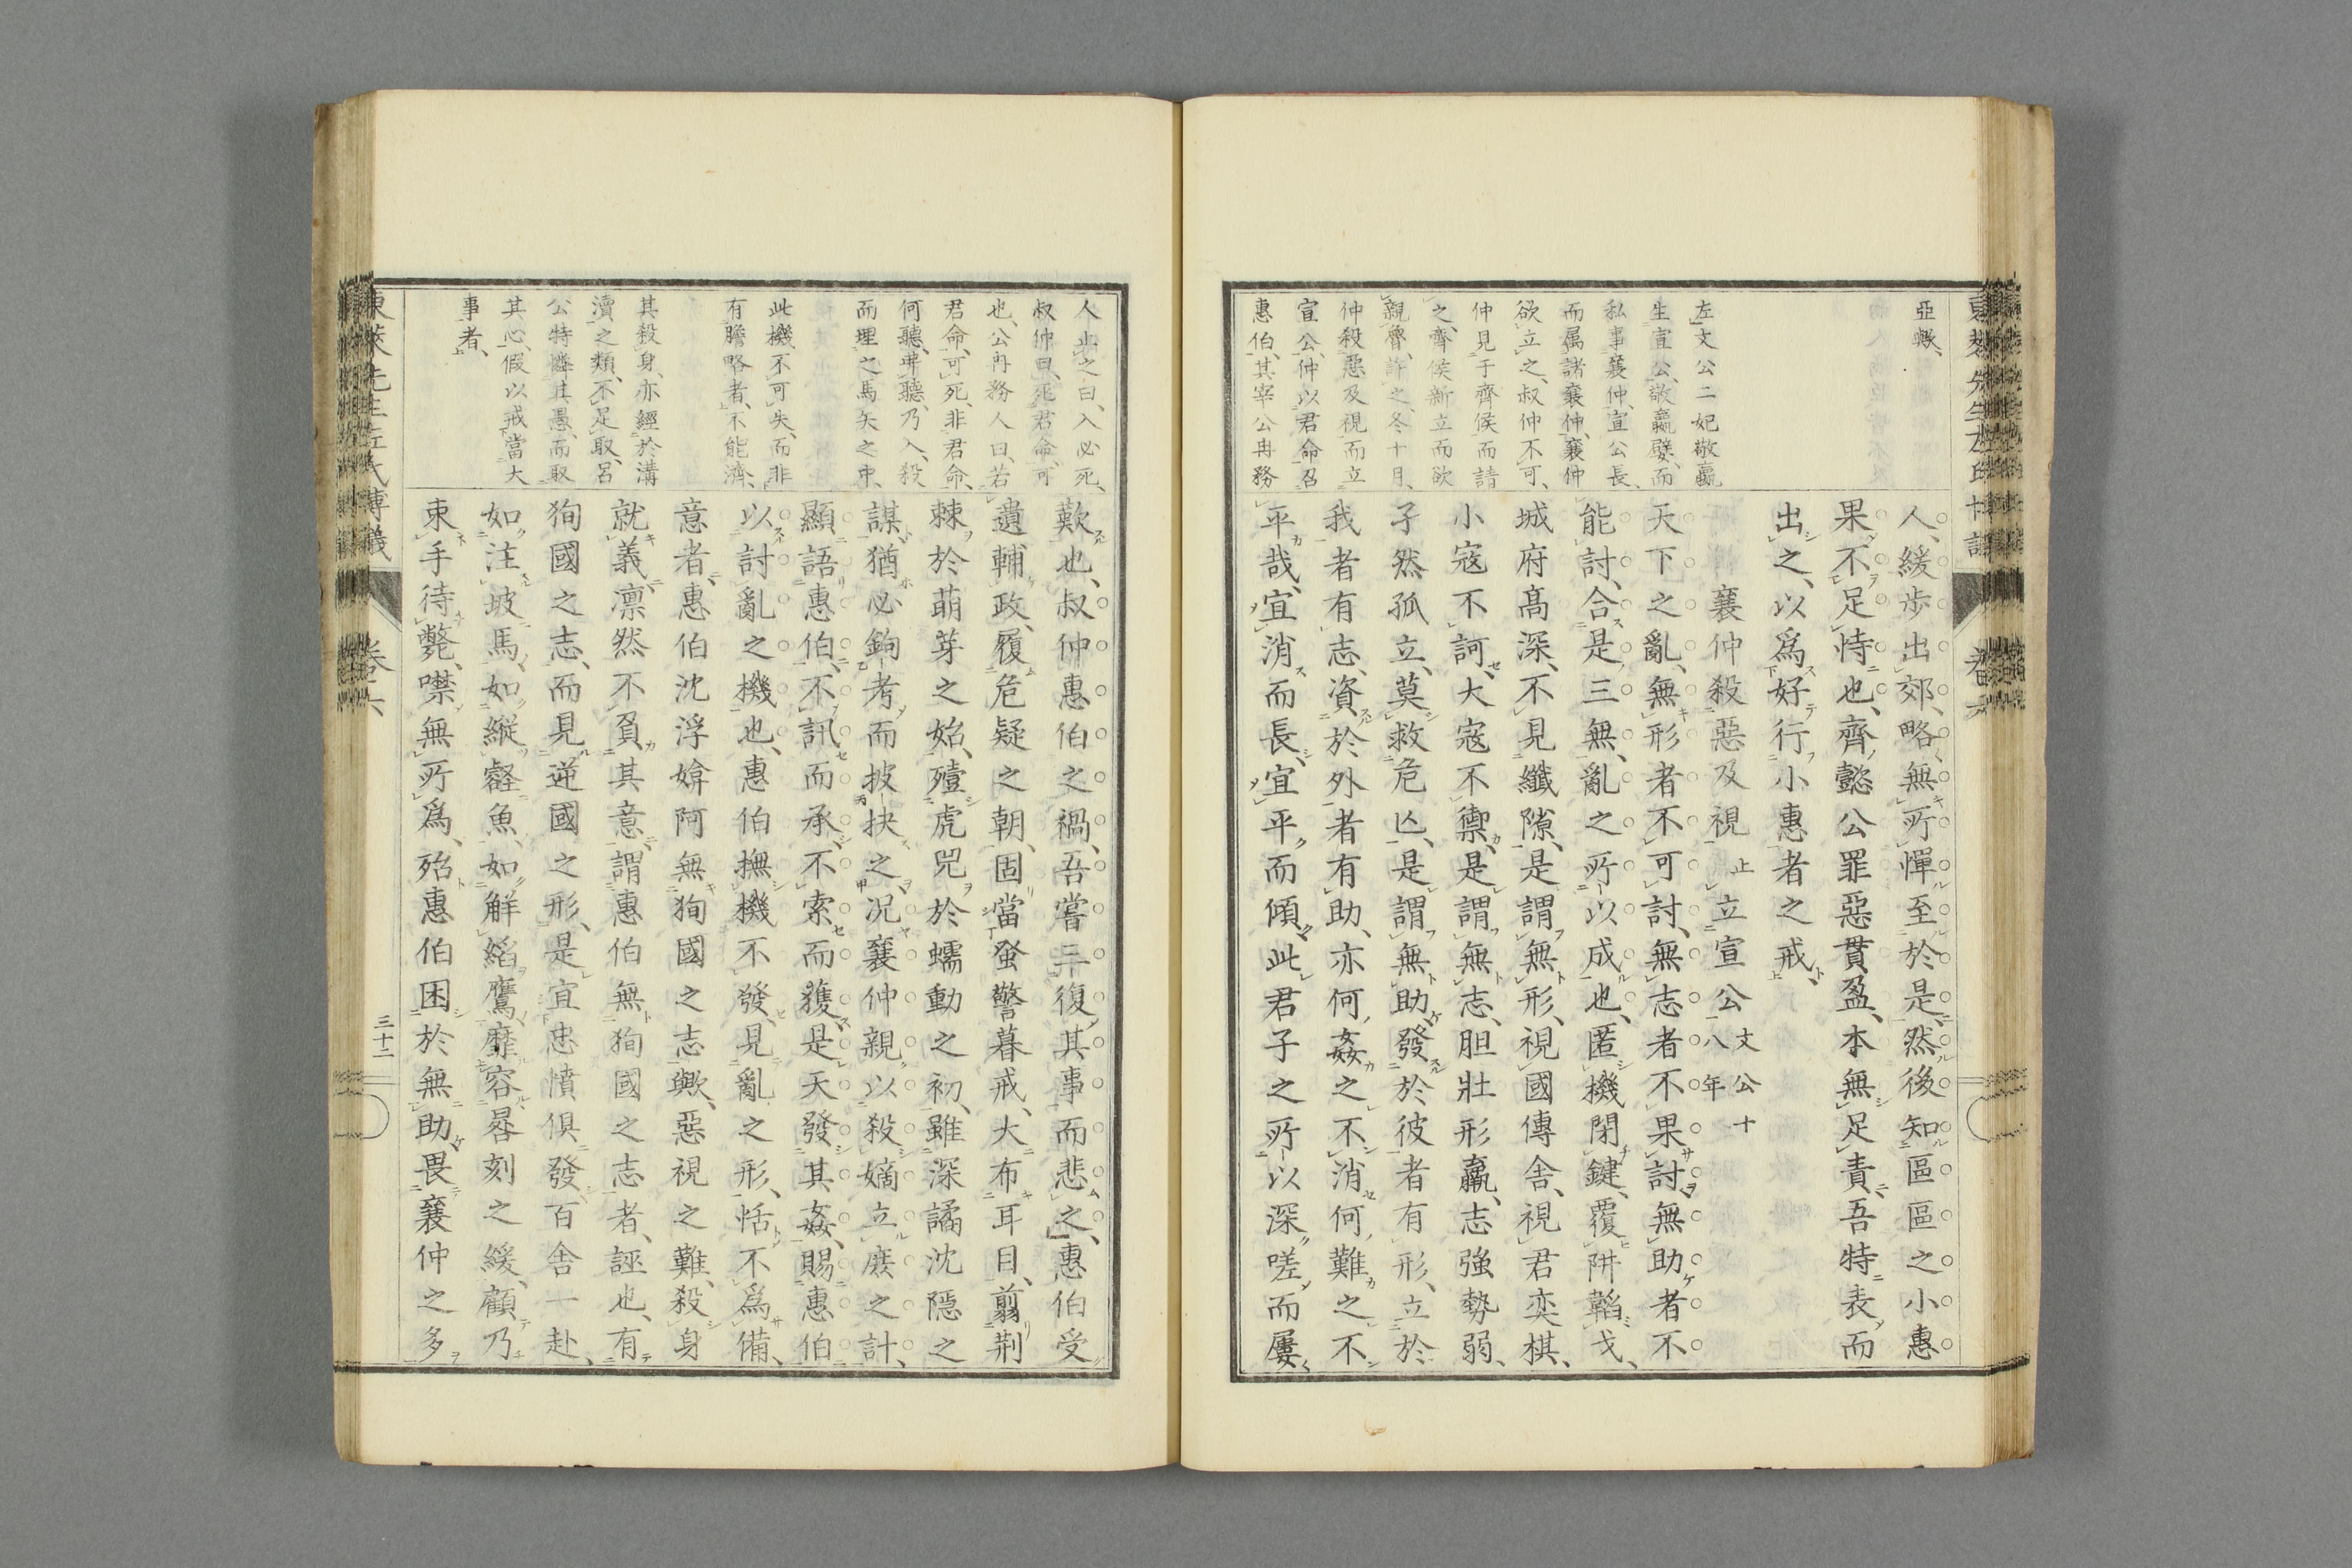 亞歟、
左文公二妃敬嬴
生宣公、敬嬴嬖、而
私事襄仲、宣公長、
而属諸襄仲、襄仲
欲立之、叔仲不可、
仲見于齊侯而請
之、齊侯新立而欲
親魯、許之、冬十月、
仲殺惡及視而立
宣公、仲以君命召
惠伯、其宰公冉務
人、緩歩出郊、略無所憚、至於是、然後知區區之小惠
果不足恃也、齊懿公罪惡貫盈、本無足責、吾特表而
出之、以爲好行小惠者之戒、
襄仲殺惡及視止立宣公文公十八年
天下之亂、無形者不可討、無志者不果討、無助者不
能討、合是三無、亂之所以成也、匿機閉鍵、覆阱韜戈、
城府髙深、不見纖隙、是謂無形、視國傳舎、視君奕棋、
小寇不訶、大寇不禦、是謂無志、胆壯形羸、志強勢弱、
孑然孤立、莫救危亾、是謂無助、發於彼者有形、立於
我者有志、資於外者有助、亦何姦之不消、何難之不
平哉、宜消而長、宜平而傾、此君子之所以深嗟而屢
人止之曰、入必死、
叔仲曰、死君命、可
也、公冉務人曰、若
君命、可死、非君命、
何聽、弗聽、乃入、殺
而埋之馬矢之中、
此機不可失、而非
有膽略者、不能濟、
其殺身、亦經於溝
瀆之類、不足取、呂
公特憐其愚、而取
其心、假以戒當大
事者、
歎也、叔仲惠伯之禍、吾嘗三復其事而悲之、惠伯受
遺輔政、履危疑之朝、固當蚤警暮戒、大布耳目、翦荆
棘於萌芽之始、殪虎兕於蠕動之初、雖深譎沈隱之
謀、猶必鉤考而披抉之、况襄仲親以殺嫡立庶之計、
顯語惠伯、不訊而承、不索而獲、是天發其姦、賜惠伯
以討亂之機也、惠伯撫機不發、見亂之形、恬不爲備、
意者、惠伯沈浮媕阿無狥國之志歟、惡視之難、殺身
就義、凛然不負其意、謂惠伯無狥國之志者、誣也、有
狥國之志、而見逆國之形、是宜忠憤俱發、百舎一赴、
如注坡馬、如縱壑魚、如解縚鷹、靡容晷刻之緩、顧乃
束手待斃、噤無所爲、殆惠伯困於無助、畏襄仲之多
東萊先生左氏博議
卷六
三十二